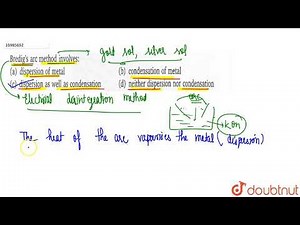 Bredig's arc method involves:
gold sol, silver sol
(a) dispersion of metal
(b) condensation of metal
(c) dispersion as well as condensation
(d) neither dispersion nor condensation
Electrical disintegration method
arc
KOH
The heat of the arc vapourises the metal (dispersion)
doubtnut